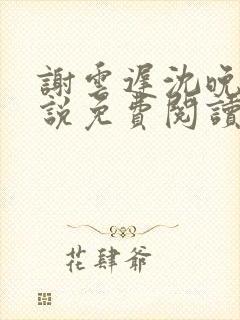 謝雲遲沈晚
說免費閱讀
花肆爺